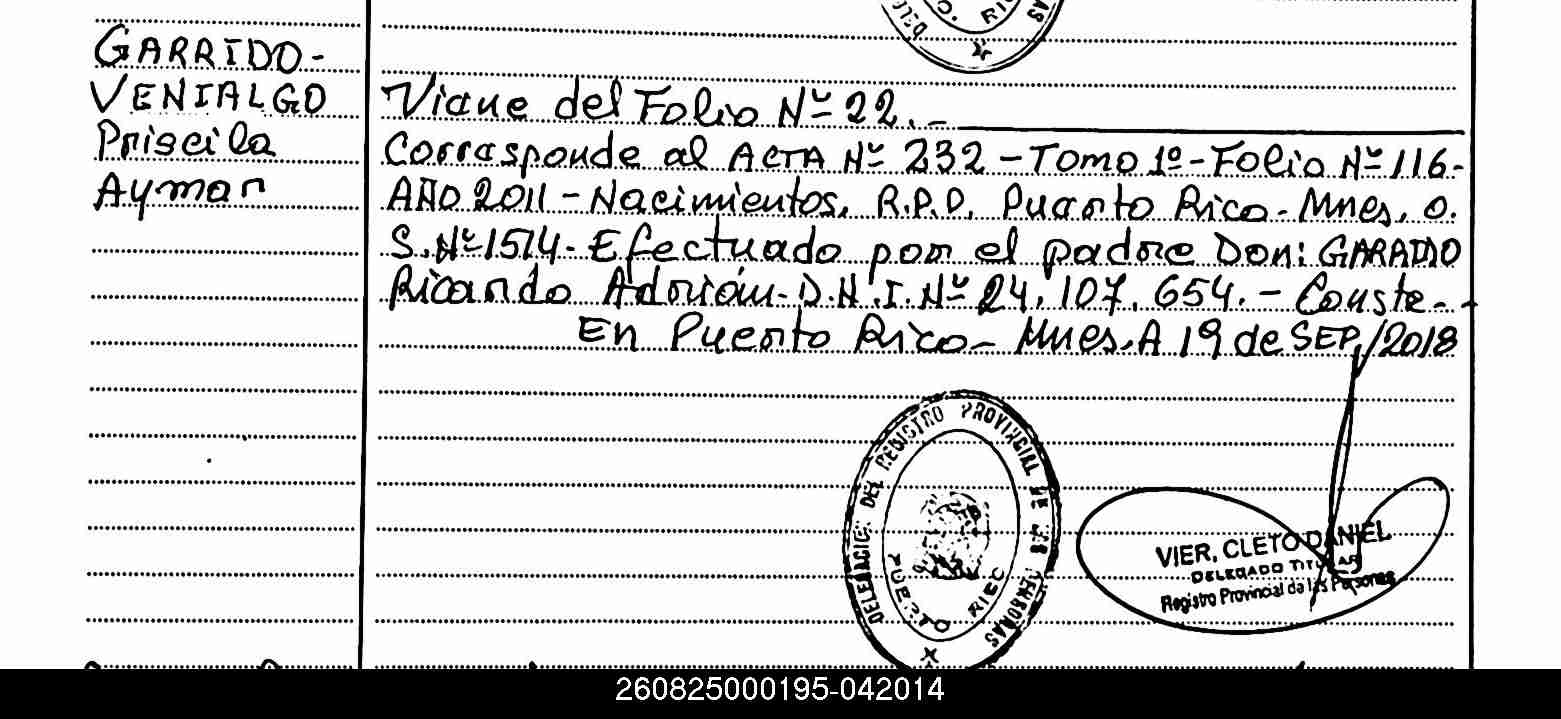 GARRIDO-
VENIALGO
Priscila
Aymar
Viene del Folio Nº 22.-
Corresponde al ACTA Nº 232 - Tomo 1º - Folio Nº 116-
AÑO 2011 - Nacimientos. R.P.P. Puerto Rico - Mnes. O.
S. Nº 1514 - Efectuado por el padre Don: GARRIDO
Ricardo Adrián - D.N.I. Nº 24.107.654. - Conste.-
En Puerto Rico - Mnes. A 19 de SEP/2018
DELEGACION DEL REGISTRO PROVINCIAL DE LAS PERSONAS
PUERTO RICO
VIER, CLETO DANIEL
DELEGADO TITULAR
Registro Provincial de las Personas
260825000195-042014